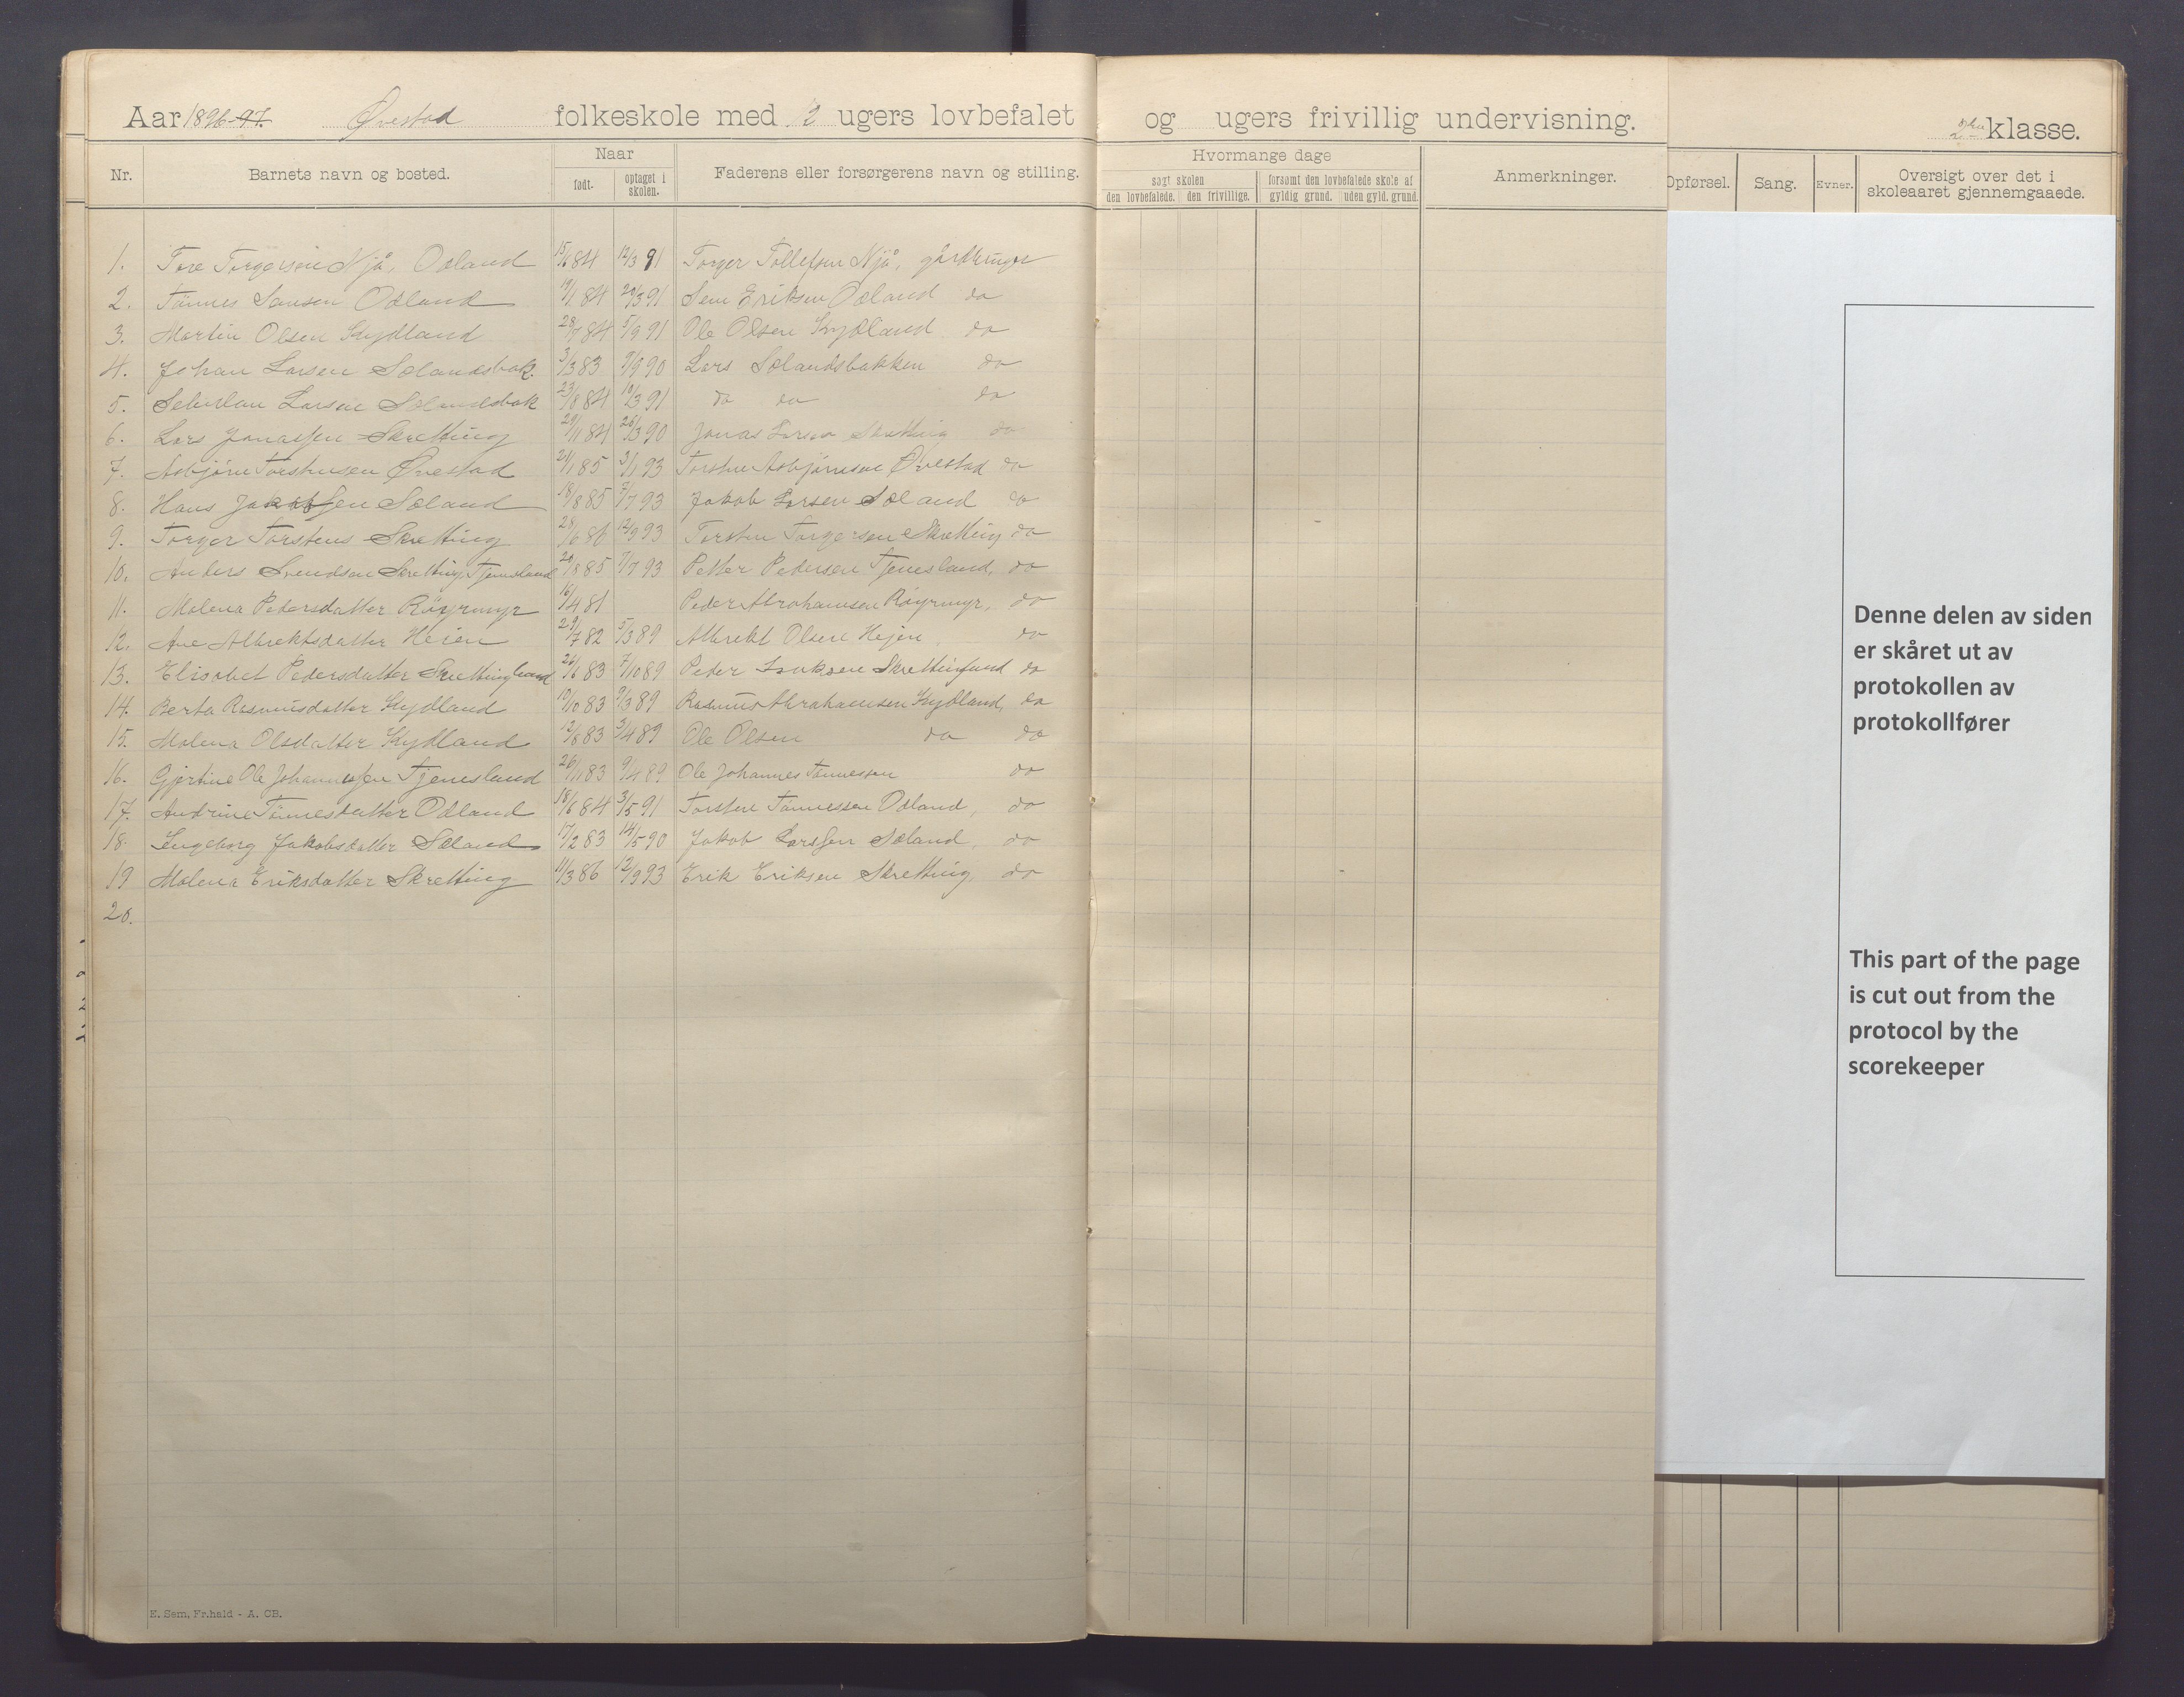 Aar 1896-97. Øvestad folkeskole med 2 ugers lovbefalet og ugers frivillig undervisning. 2den klasse.
Nr. Barnets navn og bosted. Naar født. optaget i skolen. Faderens eller forsørgerens navn og stilling. Hvormange dage søgt skolen den lovbefalede. den frivillige. forsømt den lovbefalede skole af gyldig grund. uden gyld. grund. Anmerkninger. Opførsel. Sang. Evner. Oversigt over det i skoleaaret gjennemgaaede.
1. Tore Torgersen Njå, Odland 15/6 84 12/3 91 Torger Tollefsen Njå, gårdbruger
2. Tönnes Odland 19/1 84 20/3 91 Eriksen Odland do
3. Martin Olsen Kydland 28/7 84 5/9 91 Ole Olsen Kydland do
4. Johan Larsen Sölandsbak. 3/3 83 9/9 90 Lars Sölandsbakken do
5. Larsen Sölandsbak 23/8 84 10/3 91 do do do
6. Lars Jonassen Skretting 29/11 84 26/3 90 Jonas Larsen Skretting do
7. Asbjörn Torstensen Øvestad 21/1 85 3/1 93 Torsten Asbjörnsen Øvestad do
8. Hans Jakobsen Söland 18/8 85 7/7 93 Jakob Larsen Söland do
9. Torger Torstens Skretting 28/6 86 12/9 93 Torsten Torgersen Skretting do
10. Anders Svendsen Skretting, Tjemsland 20/8 85 7/7 93 Petter Pedersen Tjemsland, do
11. Malena Pedersdatter Röyrmyr 16/4 81 Peder Abrahamsen Röyrmyr, do
12. Ane Albrektsdatter Heien 29/7 82 5/3 89 Albrekt Olsen Hejen do
13. Elisabet Pedersdatter Skrettingland 26/6 83 7/10 89 Peder Isaksen Skrettingland do
14. Berta Rasmusdatter Kydland 10/10 83 9/3 89 Rasmus Abrahamsen Kydland, do
15. Malena Olsdatter Kydland 12/8 83 3/4 89 Ole Olsen do do
16. Gjertine Ole Johannessen Tjemsland 26/11 83 9/4 89 Ole Johannes Tönnessen do
17. Andrine Tönnesdatter Odland 18/6 84 3/5 91 Torsten Tönnessen Odland, do
18. Ingeborg Jakobsdatter Söland 17/2 83 14/5 90 Jakob Larssen Söland, do
19 Malena Eriksdatter Skretting 11/3 86 12/9 93 Erik Eriksen Skretting, do
20.
E. Sem, Fr.hald - A. CB.
Denne delen av siden
er skåret ut av
protokollen av
protokollfører
This part of the page
is cut out from the
protocol by the
scorekeeper